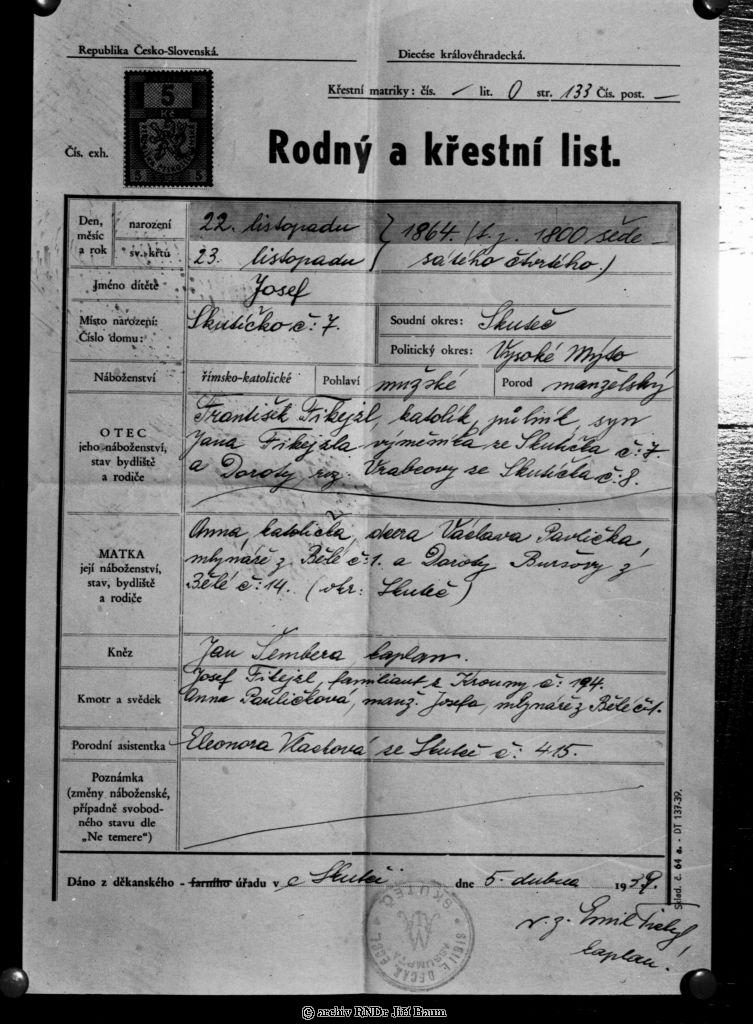 Republika Česko-Slovenská.
Diecése královéhradecká.
Křestní matriky: čís. — lit. O str. 133 Čís. post. —
5
Kč
5 5
Čís. exh.
Rodný a křestní list.
Den, měsíc a rok
narození
22. listopadu } 1864. (t. j. 1800 šede-
sv. křtu
23. listopadu sátého čtvrtého.)
Jméno dítěte
Josef
Místo narození:
Číslo domu:
Skutíčko č: 7.
Soudní okres: Skuteč
Politický okres: Vysoké Mýto
Náboženství
římsko-katolické
Pohlaví mužské
Porod manželský
OTEC
jeho náboženství,
stav bydliště
a rodiče
František Fikejzl, katolík, půlník, syn
Jana Fikejzla výměnka ze Skutíčka č: 7.
a Doroty roz. Vrabcovy ze Skutíčka č: 8.
MATKA
její náboženství,
stav, bydliště
a rodiče
Anna, katolička, dcera Václava Pavlíčka,
mlynáře z Bělé č: 1. a Doroty Buršovy z
Bělé č: 14. (okr: Skuteč)
Kněz
Jan Šembera, kaplan.
Kmotr a svědek
Josef Fikejzl, familiant z Krouny č: 194.
Anna Pavlíčková, manž. Josefa, mlynáře z Bělé č: 1.
Porodní asistentka
Eleonora Vlachová ze Skutče č: 415.
Poznámka
(změny náboženské,
případně svobod-
ného stavu dle
„Ne temere“)
Dáno z děkanského - farního úřadu v Skutči dne 5. dubna 1939.
v. z. Emil Tichý
kaplan.
Sklad. č. 64 a. - DT 137-39.
SKUTEČ
ASSUMPTA
© archiv RNDr Jiří Baum